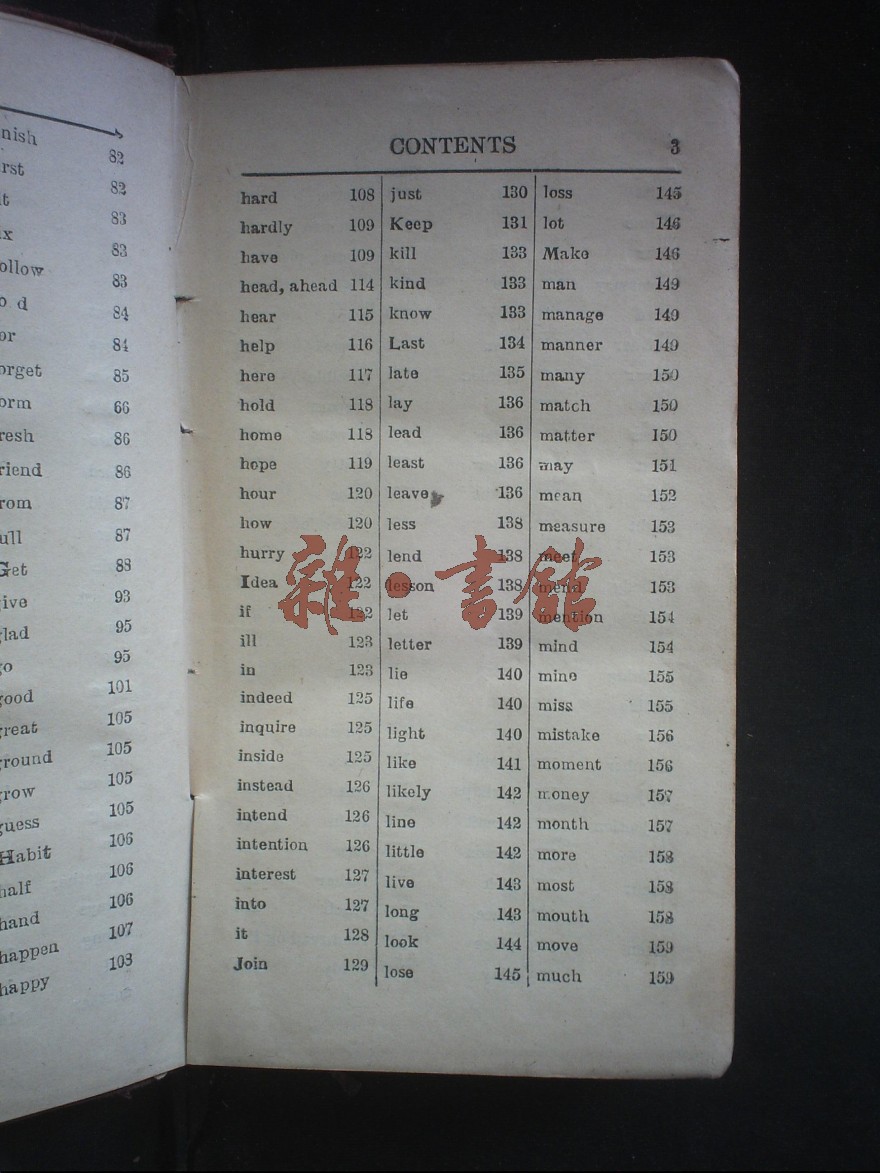 nish 82
rst 82
t 83
x 83
ollow 83
o d 84
or 84
orget 85
orm 66
resh 86
riend 86
rom 87
ull 87
Get 88
ive 93
lad 95
o 95
ood 101
reat 105
round 105
row 105
uess 105
Habit 106
alf 106
hand 106
happen 107
happy 103
CONTENTS 3
hard 108
hardly 109
have 109
head, ahead 114
hear 115
help 116
here 117
hold 118
home 118
hope 119
hour 120
how 120
hurry 122
Idea 122
if 122
ill 123
in 123
indeed 125
inquire 125
inside 125
instead 126
intend 126
intention 126
interest 127
into 127
it 128
Join 129
just 130
Keep 131
kill 133
kind 133
know 133
Last 134
late 135
lay 136
lead 136
least 136
leave 136
less 138
lend 138
lesson 138
let 139
letter 139
lie 140
life 140
light 140
like 141
likely 142
line 142
little 142
live 143
long 143
look 144
lose 145
loss 145
lot 146
Make 146
man 149
manage 149
manner 149
many 150
match 150
matter 150
may 151
mean 152
measure 153
meet 153
mend 153
mention 154
mind 154
mine 155
miss 155
mistake 156
moment 156
money 157
month 157
more 158
most 158
mouth 158
move 159
much 159
雜·書館